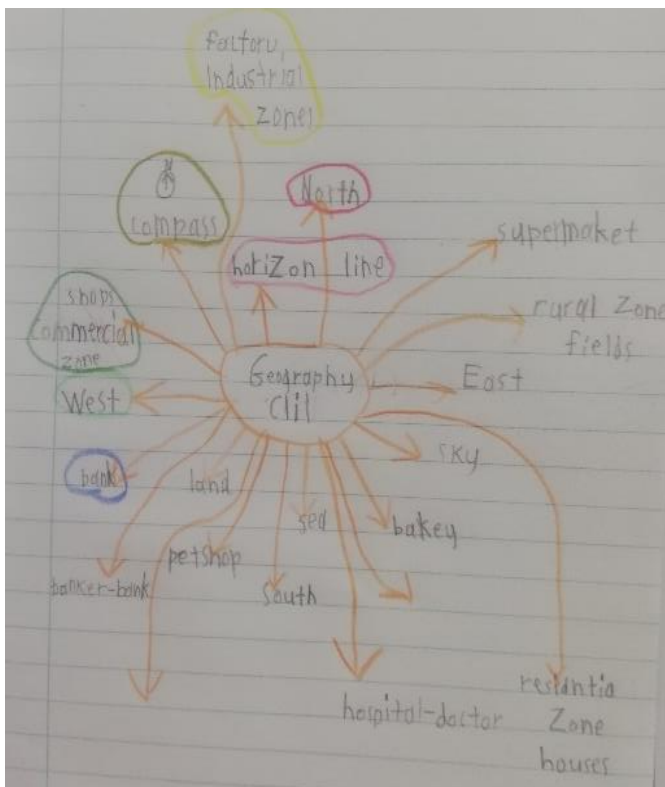 factory,
industrial
zone
N
compass
North
horizon line
supermaket
shops
commercial
zone
rural zone
fields
Geography
Clil
East
West
sky
bank
land
sea
bakey
petshop
banker-bank
south
hospital-doctor
residantia
zone
houses